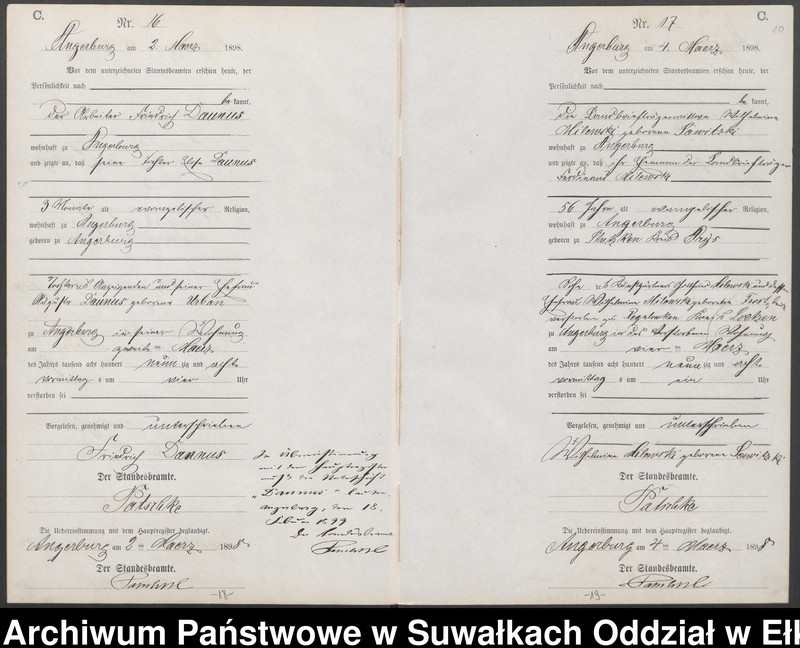 C.
Nr. 16
Angerburg am 2. Maerz 1898.
Vor dem unterzeichneten Standesbeamten erschien heute, der
Persönlichkeit nach
be kannt,
der Arbeiter Friedrich Daunus
wohnhaft zu Angerburg
und zeigte an, daß seine Tochter Daunus
3 Monate alt evangelischer Religion,
wohnhaft zu Angerburg
geboren zu Angerburg
Tochter des Anzeigenden und seiner Ehefrau
Auguste Daunus geborene Urban
zu Angerburg in seiner Wohnung
am zweiten Maerz
des Jahres tausend acht hundert neunzig und acht
vormittag s um vier Uhr
verstorben sei
Vorgelesen, genehmigt und unterschrieben
Friedrich Dannus
Der Standesbeamte.
Patschke
Die Uebereinstimmung mit dem Hauptregister beglaubigt.
Angerburg am 2ten Maerz 1898
Der Standesbeamte.
In Übereinstimmung
mit dem Hauptregister
"Dannus"
Angerburg, den 18.
Februar 1899
Der Standesbeamte
-18-
C.
10
Nr. 17
Angerburg am 4. Maerz 1898.
Vor dem unterzeichneten Standesbeamten erschien heute, der
Persönlichkeit nach
be kannt,
die Landbriefträgerwittwe Wilhelmine
Milewski geborene Sawitzki
wohnhaft zu Angerburg
und zeigte an, daß ihr Ehemann der Landbriefträger
Ferdinand Milewski
56 Jahre alt evangelischer Religion,
wohnhaft zu Angerburg
geboren zu Kreis
Sohn des Gottlieb Milewski und dessen
Ehefrau Wilhelmine Milewski geborenen
verstorben zu Kreis Loetzen
zu Angerburg in des Verstorbenen Wohnung
am vierten Maerz
des Jahres tausend acht hundert neunzig und acht
vormittag s um ein Uhr
verstorben sei
Vorgelesen, genehmigt und unterschrieben
Wilhelmine Milewski geborene Sawitzki
Der Standesbeamte.
Patschke
Die Uebereinstimmung mit dem Hauptregister beglaubigt.
Angerburg am 4ten Maerz 1898
Der Standesbeamte.
-19-
Archiwum Państwowe w Suwałkach Oddział w Ełk